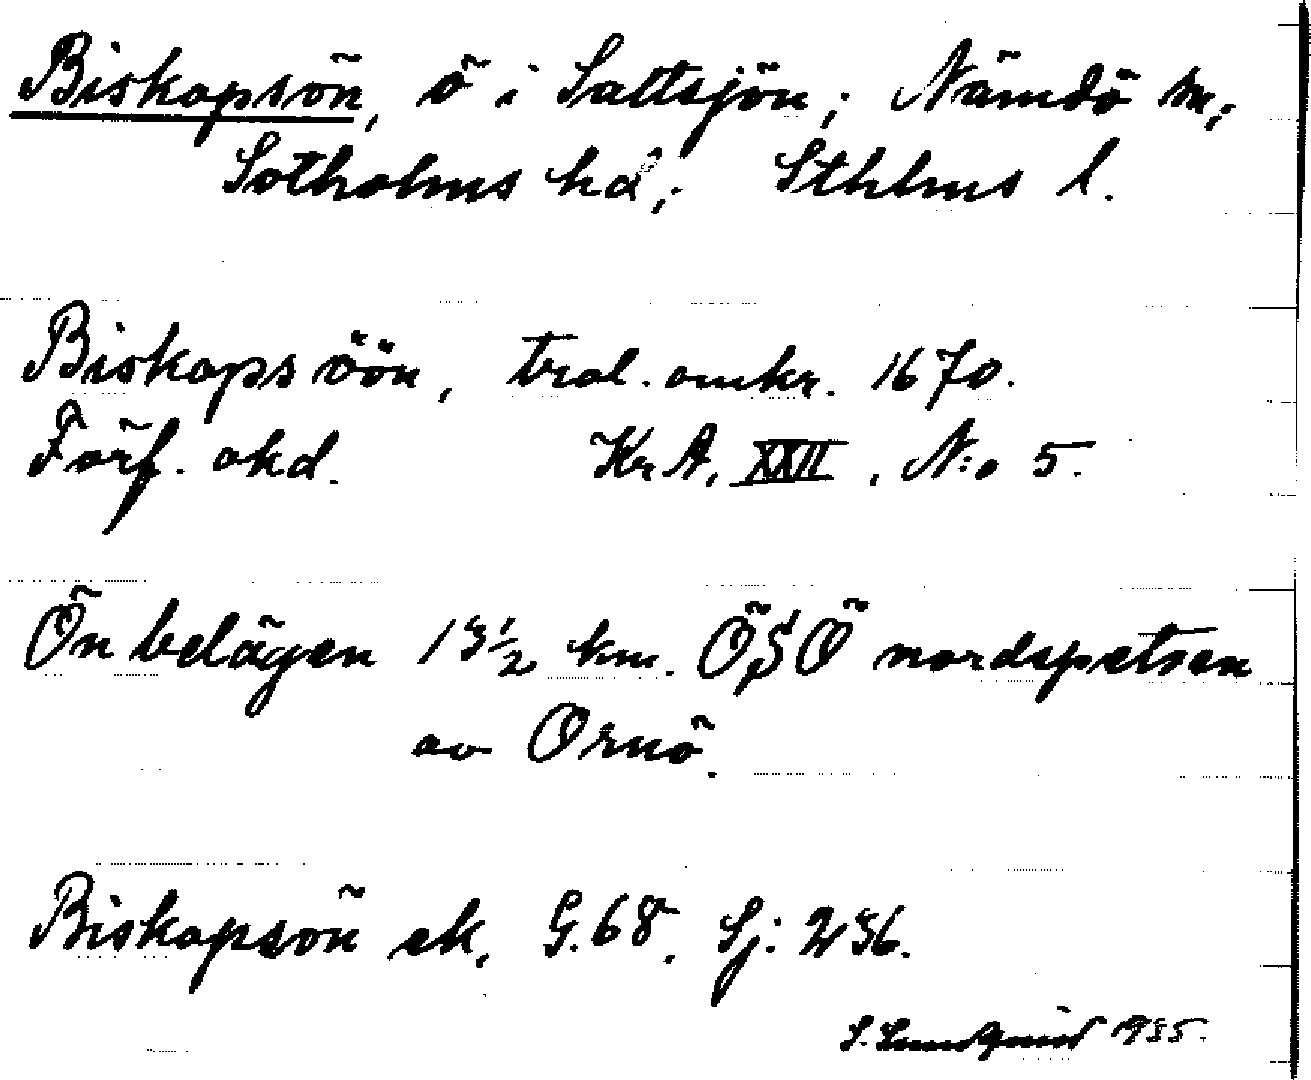 Biskopsön, ö i Saltsjön; Nämdö sn;
Sotholms hd; Sthlms l.
Biskops öön, trol. omkr. 1670.
Förf. okd. Kr A, XXII, N:o 5.
Ön belägen 13½ km. ÖSÖ nordspetsen
av Ornö.
Biskopsön ek. G.68. Sj: 236.
S. Lundqvist 1935.